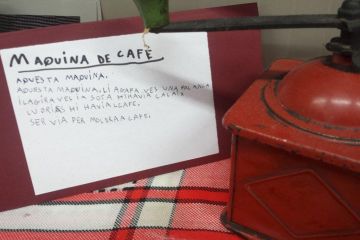 MAQUINA DE CAFÈ
AQUESTA MAQUINA.
AQUESTA MAQUINA, LI AGAFA VES UNA PALANCA
I LAGIRAVES I A SOTA HI HAVIA CALAIX
LU ORIES HI HAVIA CAFE.
SERVIA PER MOLDRA CAFE.